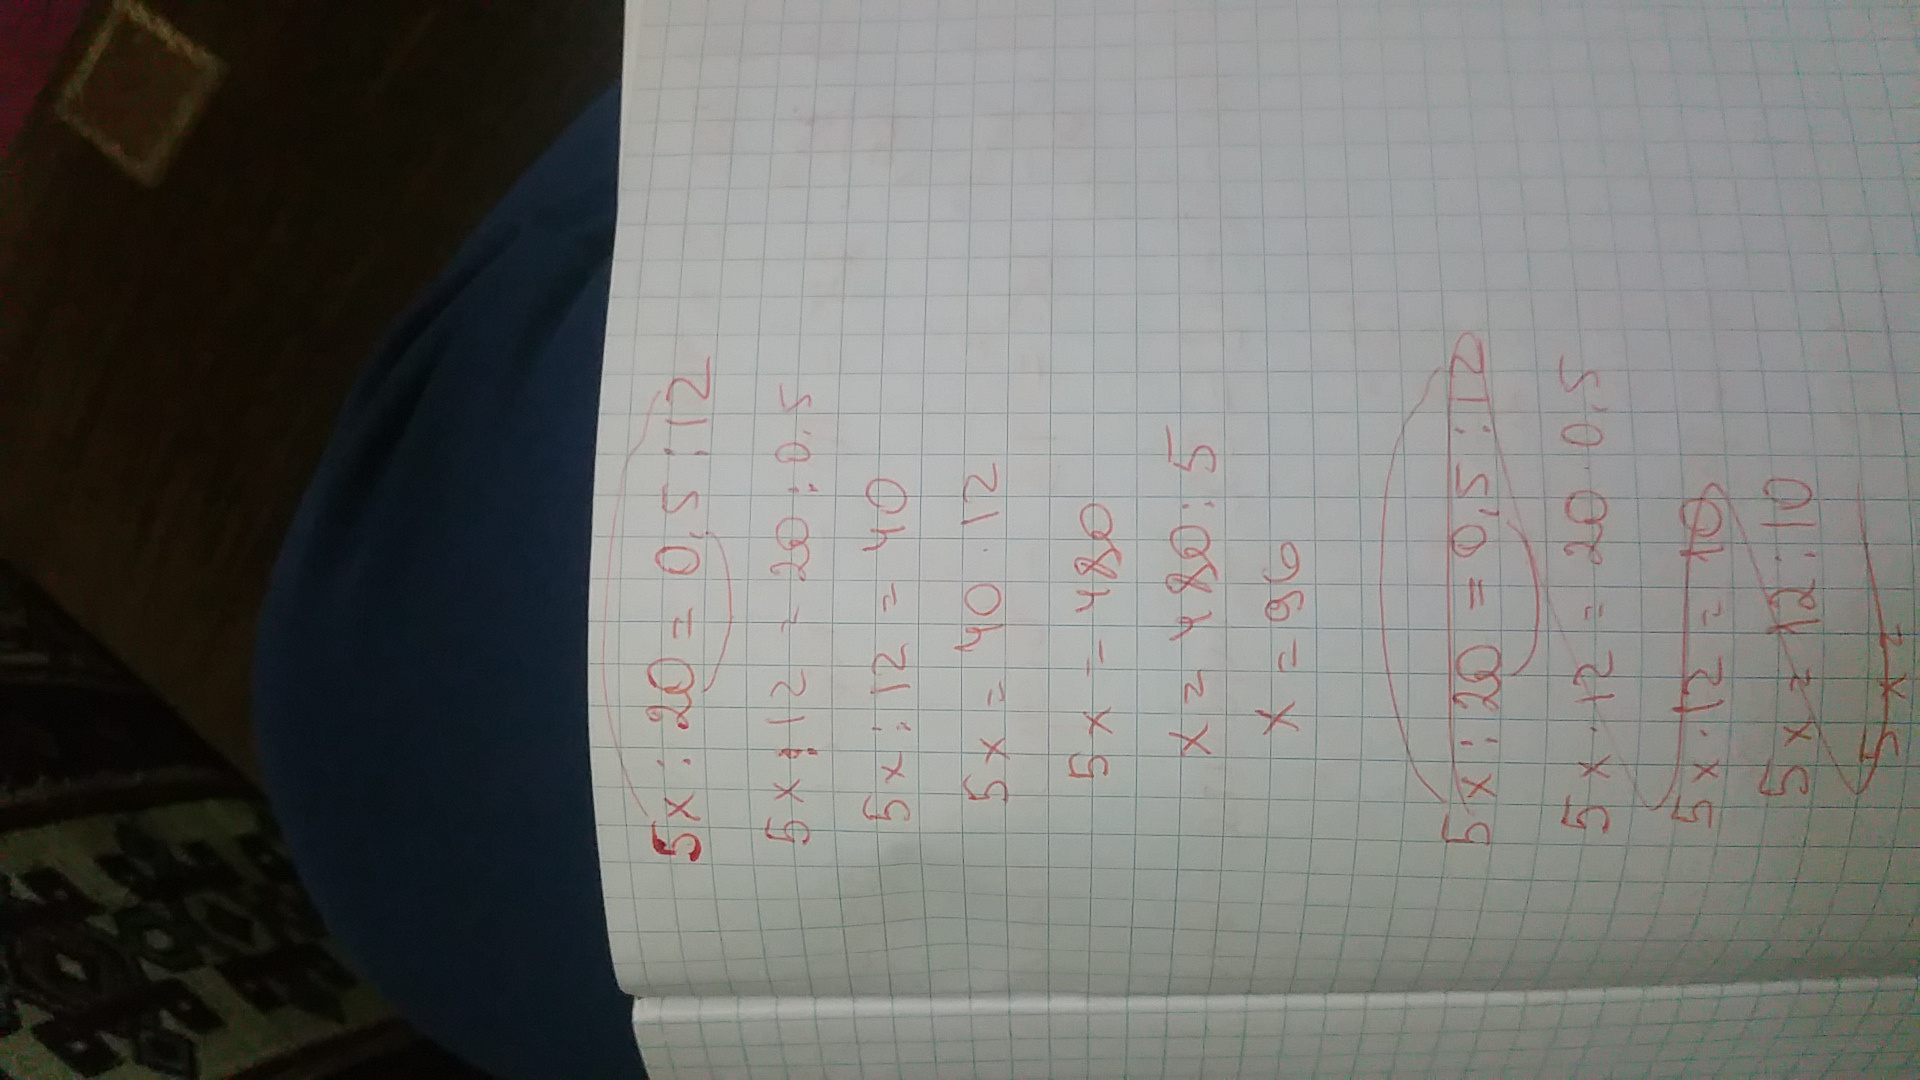 5x : 20 = 0,5 : 12
5x : 12 = 20 : 0,5
5x : 12 = 40
5x = 40 · 12
5x = 480
x = 480 : 5
x = 96
5x : 20 = 0,5 : 12
5x · 12 = 20 · 0,5
5x · 12 = 10
5x = 12 : 10
5x =